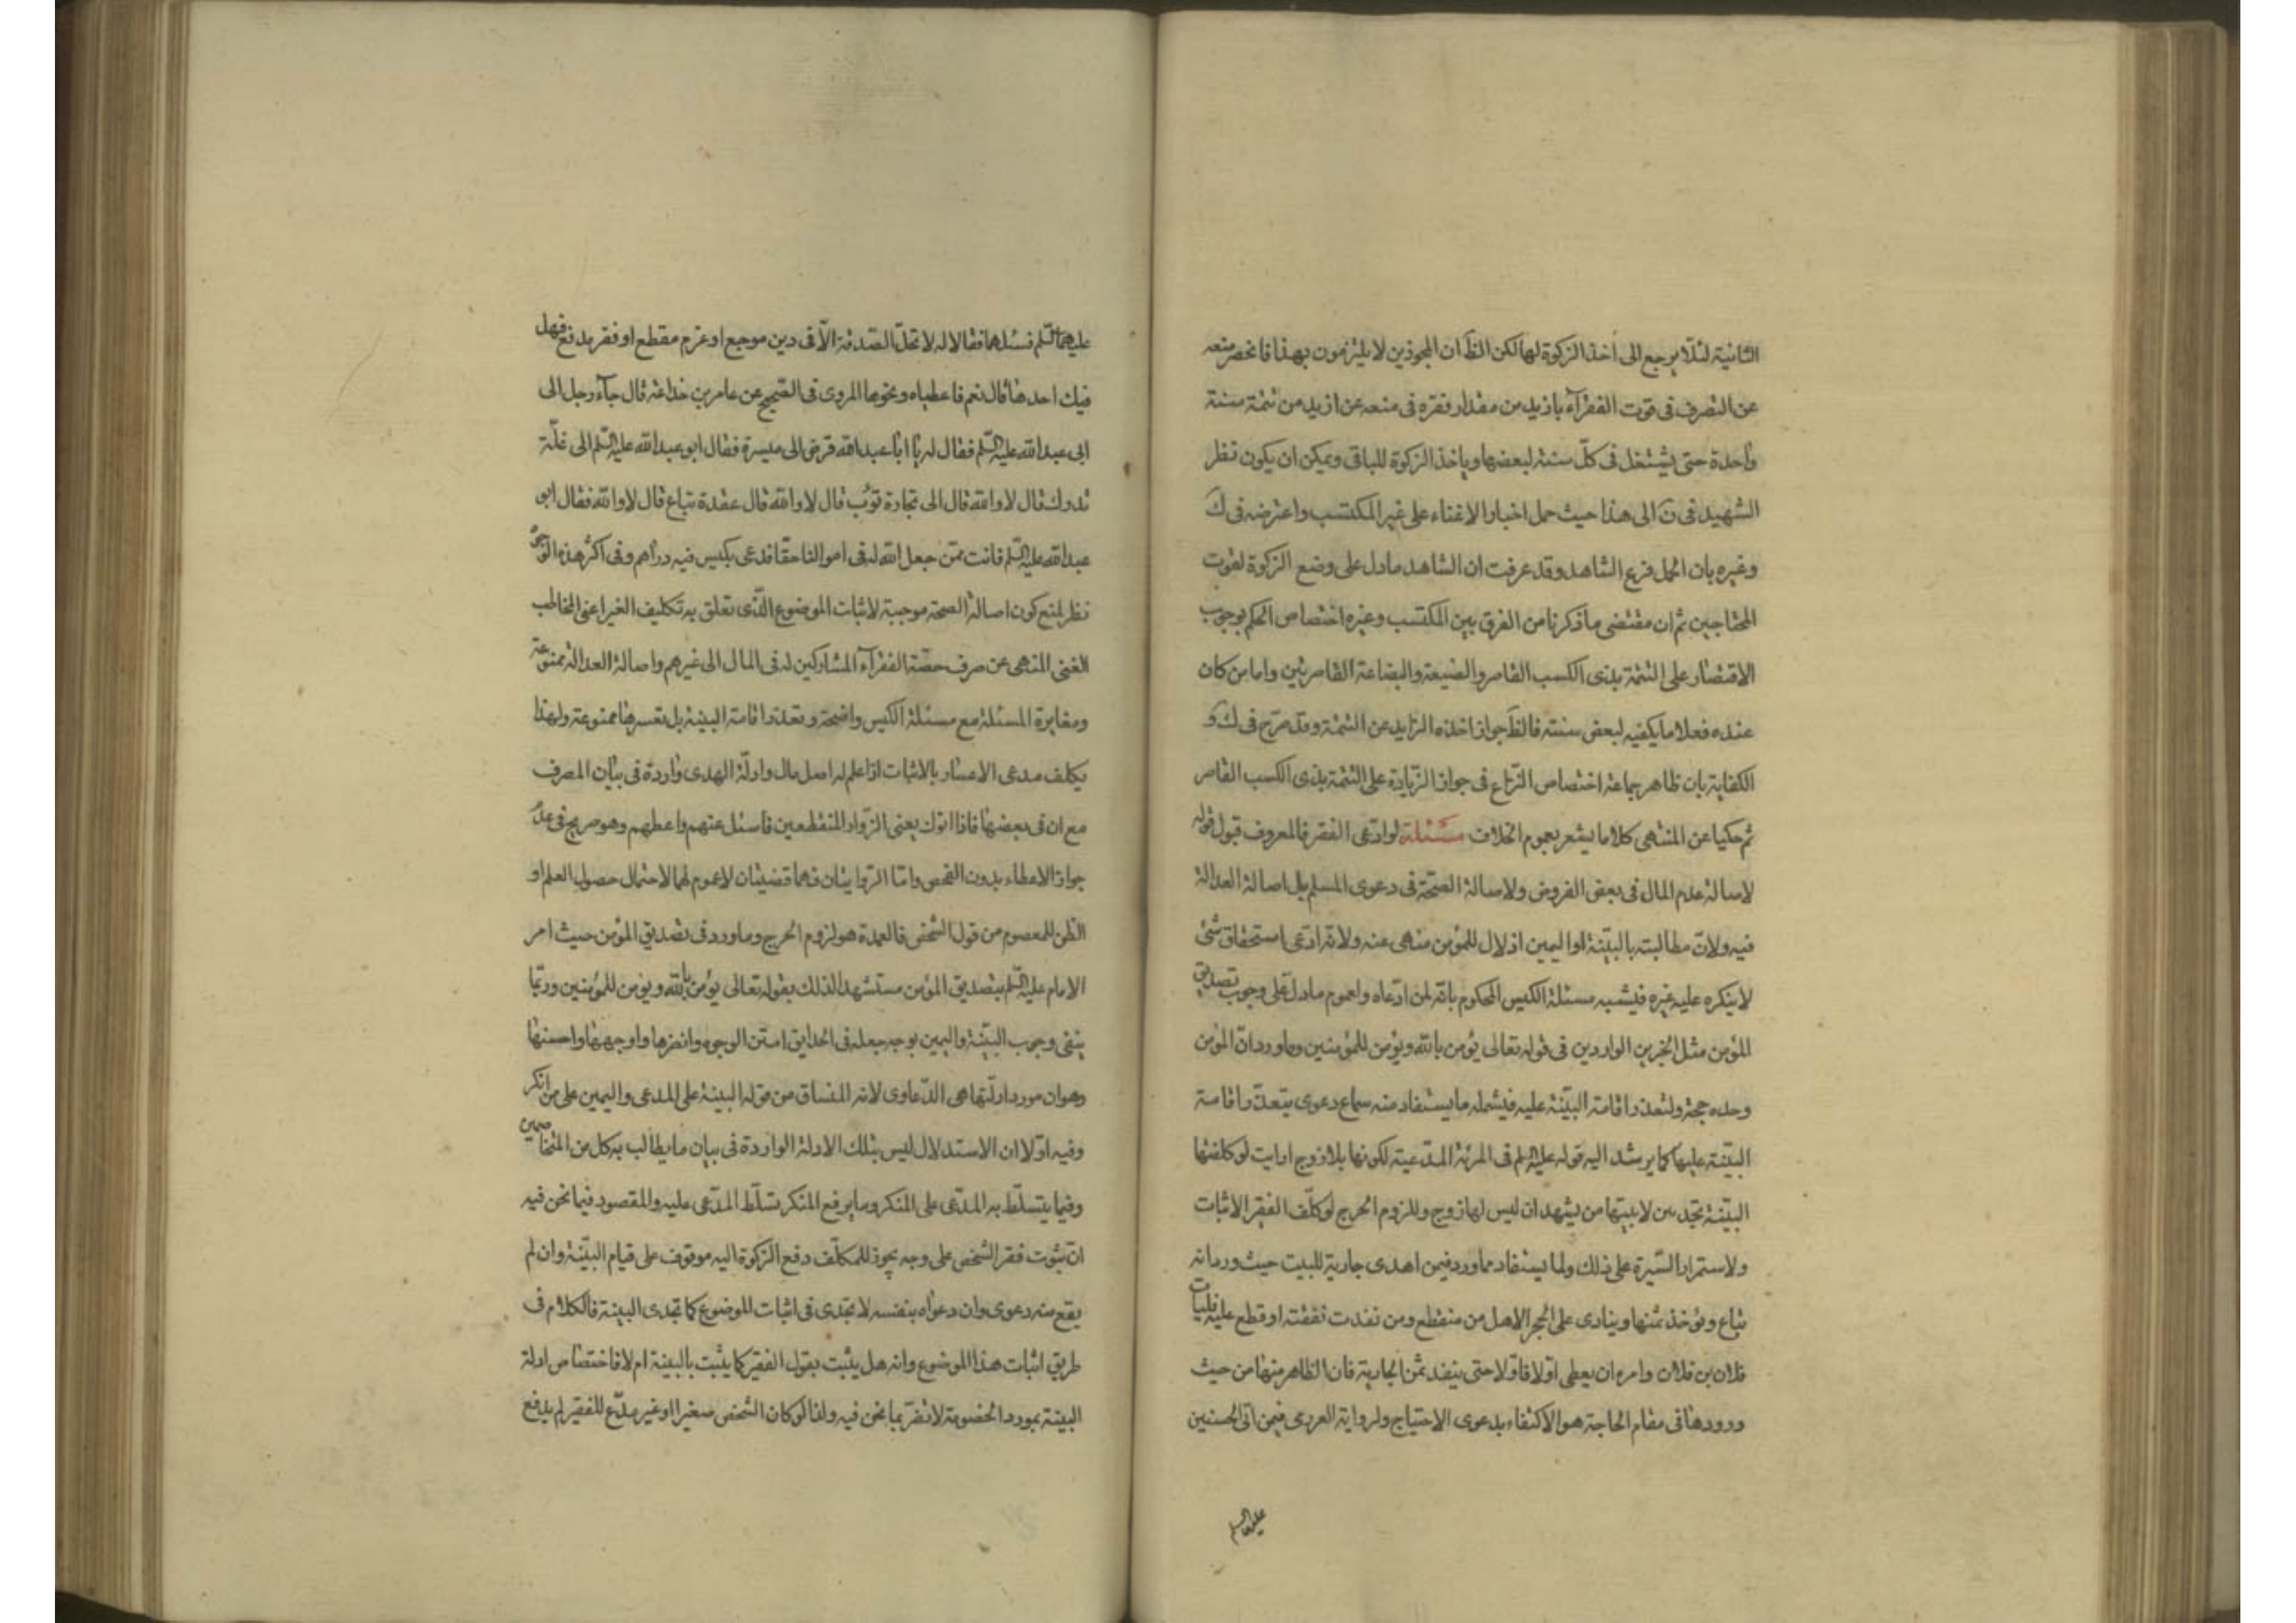 الثانية لئلا يرجع الى أخذ الزكوة لها لكن الظَ ان المجوزين لا يلتزمون بهذا فانحصر منعه
عن التصرف فى قوت الفقرآء بازيد من مقدار فقره فى منعه عن ازيد من تتمة سنة
واحدة حتى يشتغل فى كلّ سنة لبعضها وياخذ الزكوة للباقى ويمكن ان يكون نظر
الشهيد فى نَ الى هذا حيث حمل اخبار الاغناء على غير المكتسب واعترضه فى كَ
وغيره بان الحمل فرع الشاهد وقد عرفت ان الشاهد مادل على وضع الزكوة لقوت
المحتاجين ثم ان مقتضى ما ذكرنا من الفرق بين المكتسب وغيره اختصاص الحكم بوجوب
الاقتصار على التتمة بذى الكسب القاصر والضيعة والبضاعة القاصرتين واما من كان
عنده فعلا ما يكفيه لبعض سنته فالظَ جواز اخذه الزايد عن التتمة وقد صرّح فى كَ وَ
الكفاية بان ظاهر جماعة اختصاص النزاع فى جواز الزيادة على التتمة بذى الكسب القاصر
ثم حكيا عن المنتهى كلاما يشعر بعموم الخلاف مسئلة لو ادعى الفقر فالمعروف قبول قوله
لاصالة عدم المال فى بعض الفروض ولاصالة الصحّة فى دعوى المسلم بل اصالة العدالة
فيه ولانّ مطالبته بالبيّنة او اليمين اذلال للمؤمن منهى عنه ولانه ادعى استحقاق شئ
لا ينكره عليه غيره فيشبه مسئلة الكيس المحكوم بانّه لمن ادّعاه ولعموم مادلّ على وجوب تصديق
المؤمن مثل الخبرين الواردين فى قوله تعالى يؤمن بالله ويؤمن للمؤمنين وما ورد انّ المؤمن
وحده حجة ولتعذر اقامة البيّنة عليه فيشمله ما يستفاد منه سماع دعوى يتعذّر اقامة
البيّنة عليها كما يرشد اليه قوله عليه السلم فى المرئة المدّعية لكونها بلا زوج ارايت لو كلفتها
البيّنة تجد بين لابيتها من يشهد ان ليس لها زوج وللزوم الحرج لو كلّف الفقير الاثبات
ولاستمرار السّيرة على ذلك ولما يستفاد مما ورد فيمن اهدى جارية للبيت حيث ورد انه
تباع ويؤخذ ثمنها وينادى على الحجر الا هل من منقطع ومن نفدت نفقته او قطع عليه فليات
فلان بن فلان وامره ان يعطى اوّلا فاوّلا حتى ينفد ثمن الجارية فان الظاهر منها من حيث
ورودها فى مقام الحاجة هو الاكتفاء بدعوى الاحتياج ولرواية العرزمى فيمن اتى الحسنين
عليهما السلم
عليهما السّلم فسئلهما فقالا له لا تحلّ الصّدقة الاّ فى دين موجع او غرم مقطع او فقر مدقع فهل
فيك احدها قال نعم فاعطياه ونحوها المروى فى الصّحيح عن عامر بن خذاعة قال جآء رجل الى
ابى عبد الله عليه السّلم فقال له يا ابا عبد الله قرض الى ميسرة فقال ابو عبد الله عليه السّلم الى غلّة
تدرك قال لا والله قال الى تجارة تؤب قال لا والله قال عقدة تباع قال لا والله فقال ابو
عبد الله عليه السّلم فانت ممّن جعل الله له فى اموالنا حقا فدعى بكيس فيه دراهم وفى اكثر هذه الوجوه
نظر لمنع كون اصالة الصحة موجبة لاثبات الموضوع الذى تعلق به تكليف الغير اعنى المخاطب
الغنى المنهى عن صرف حصّة الفقرآء المشاركين له فى المال الى غيرهم واصالة العدالة ممنوعة
ومغايرة المسئلة مع مسئلة الكيس واضحة وتعذر اقامة البينة بل تعسرها ممنوعة ولهذا
يكلف مدعى الاعسار بالاثبات اذا علم له اصل مال وادلّة الهدى واردة فى بيان المصرف
مع ان فى بعضها فاذا اتوك يعنى الزوّار المنقطعين فاسئل عنهم واعطهم وهو صريح فى عدم
جواز الاعطاء بدون الفحص وامّا الرّوايتان فهما قضيتان لا عموم لهما لاحتمال حصول العلم او
الظن للمعصوم من قول الشخص فالعمدة هو لزوم الحرج وما ورد فى تصديق المؤمن حيث امر
الامام عليه السّلم بتصديق المؤمن مستشهدا لذلك بقوله تعالى يؤمن بالله ويؤمن للمؤمنين وربّما
ينفى وجوب البيّنة واليمين بوجه جعله فى الحدايق امتن الوجوه واظهرها واوجهها واحسنها
وهو ان مورد ادلّتها هى الدّعاوى لانه المنساق من قوله البينة على المدعى واليمين على من انكر
وفيه اوّلا ان الاستدلال ليس بتلك الادلة الواردة فى بيان ما يطالب به كل من المتخاصمين
وفيما يتسلّط به المدّعى على المنكر وما يرفع المنكر تسلّط المدّعى عليه والمقصود فيما نحن فيه
انّ ثبوت فقر الشخص على وجه يجوز للمكلّف دفع الزكوة اليه موقوف على قيام البيّنة وان لم
يقع منه دعوى وان دعواه بنفسه لا تجدى فى اثبات الموضوع كما تجدى البينة فالكلام فى
طريق اثبات هذا الموضوع وانه هل يثبت بقول الفقير كما يثبت بالبينة ام لا فاختصاص ادلة
البينة بمورد الخصومة لا تضرّ بما نحن فيه ولذا لو كان الشخص صغيرا او غير مدّع للفقر لم يدفع